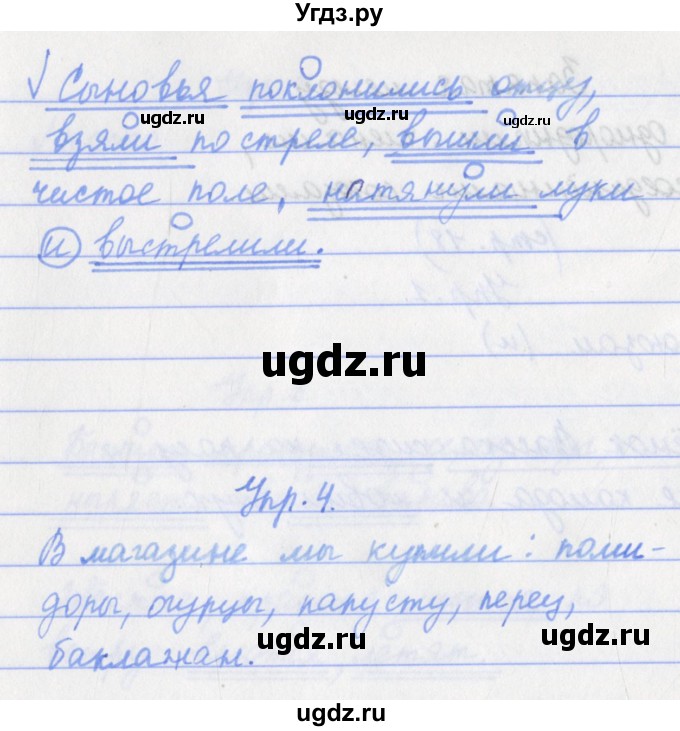 Угдз.ру
√ Сыновья поклонились отцу,
взяли по стреле, вышли в
чистое поле, натянули луки
и выстрелили.
ugdz.ru
ugdz.ru
ugdz.ru
ugdz.ru
ugdz.ru
Упр. 4.
В магазине мы купили: поми-
доры, огурцы, капусту, перец,
баклажан.
ugdz.ru
ugdz.ru
ugdz.ru
ugdz.ru